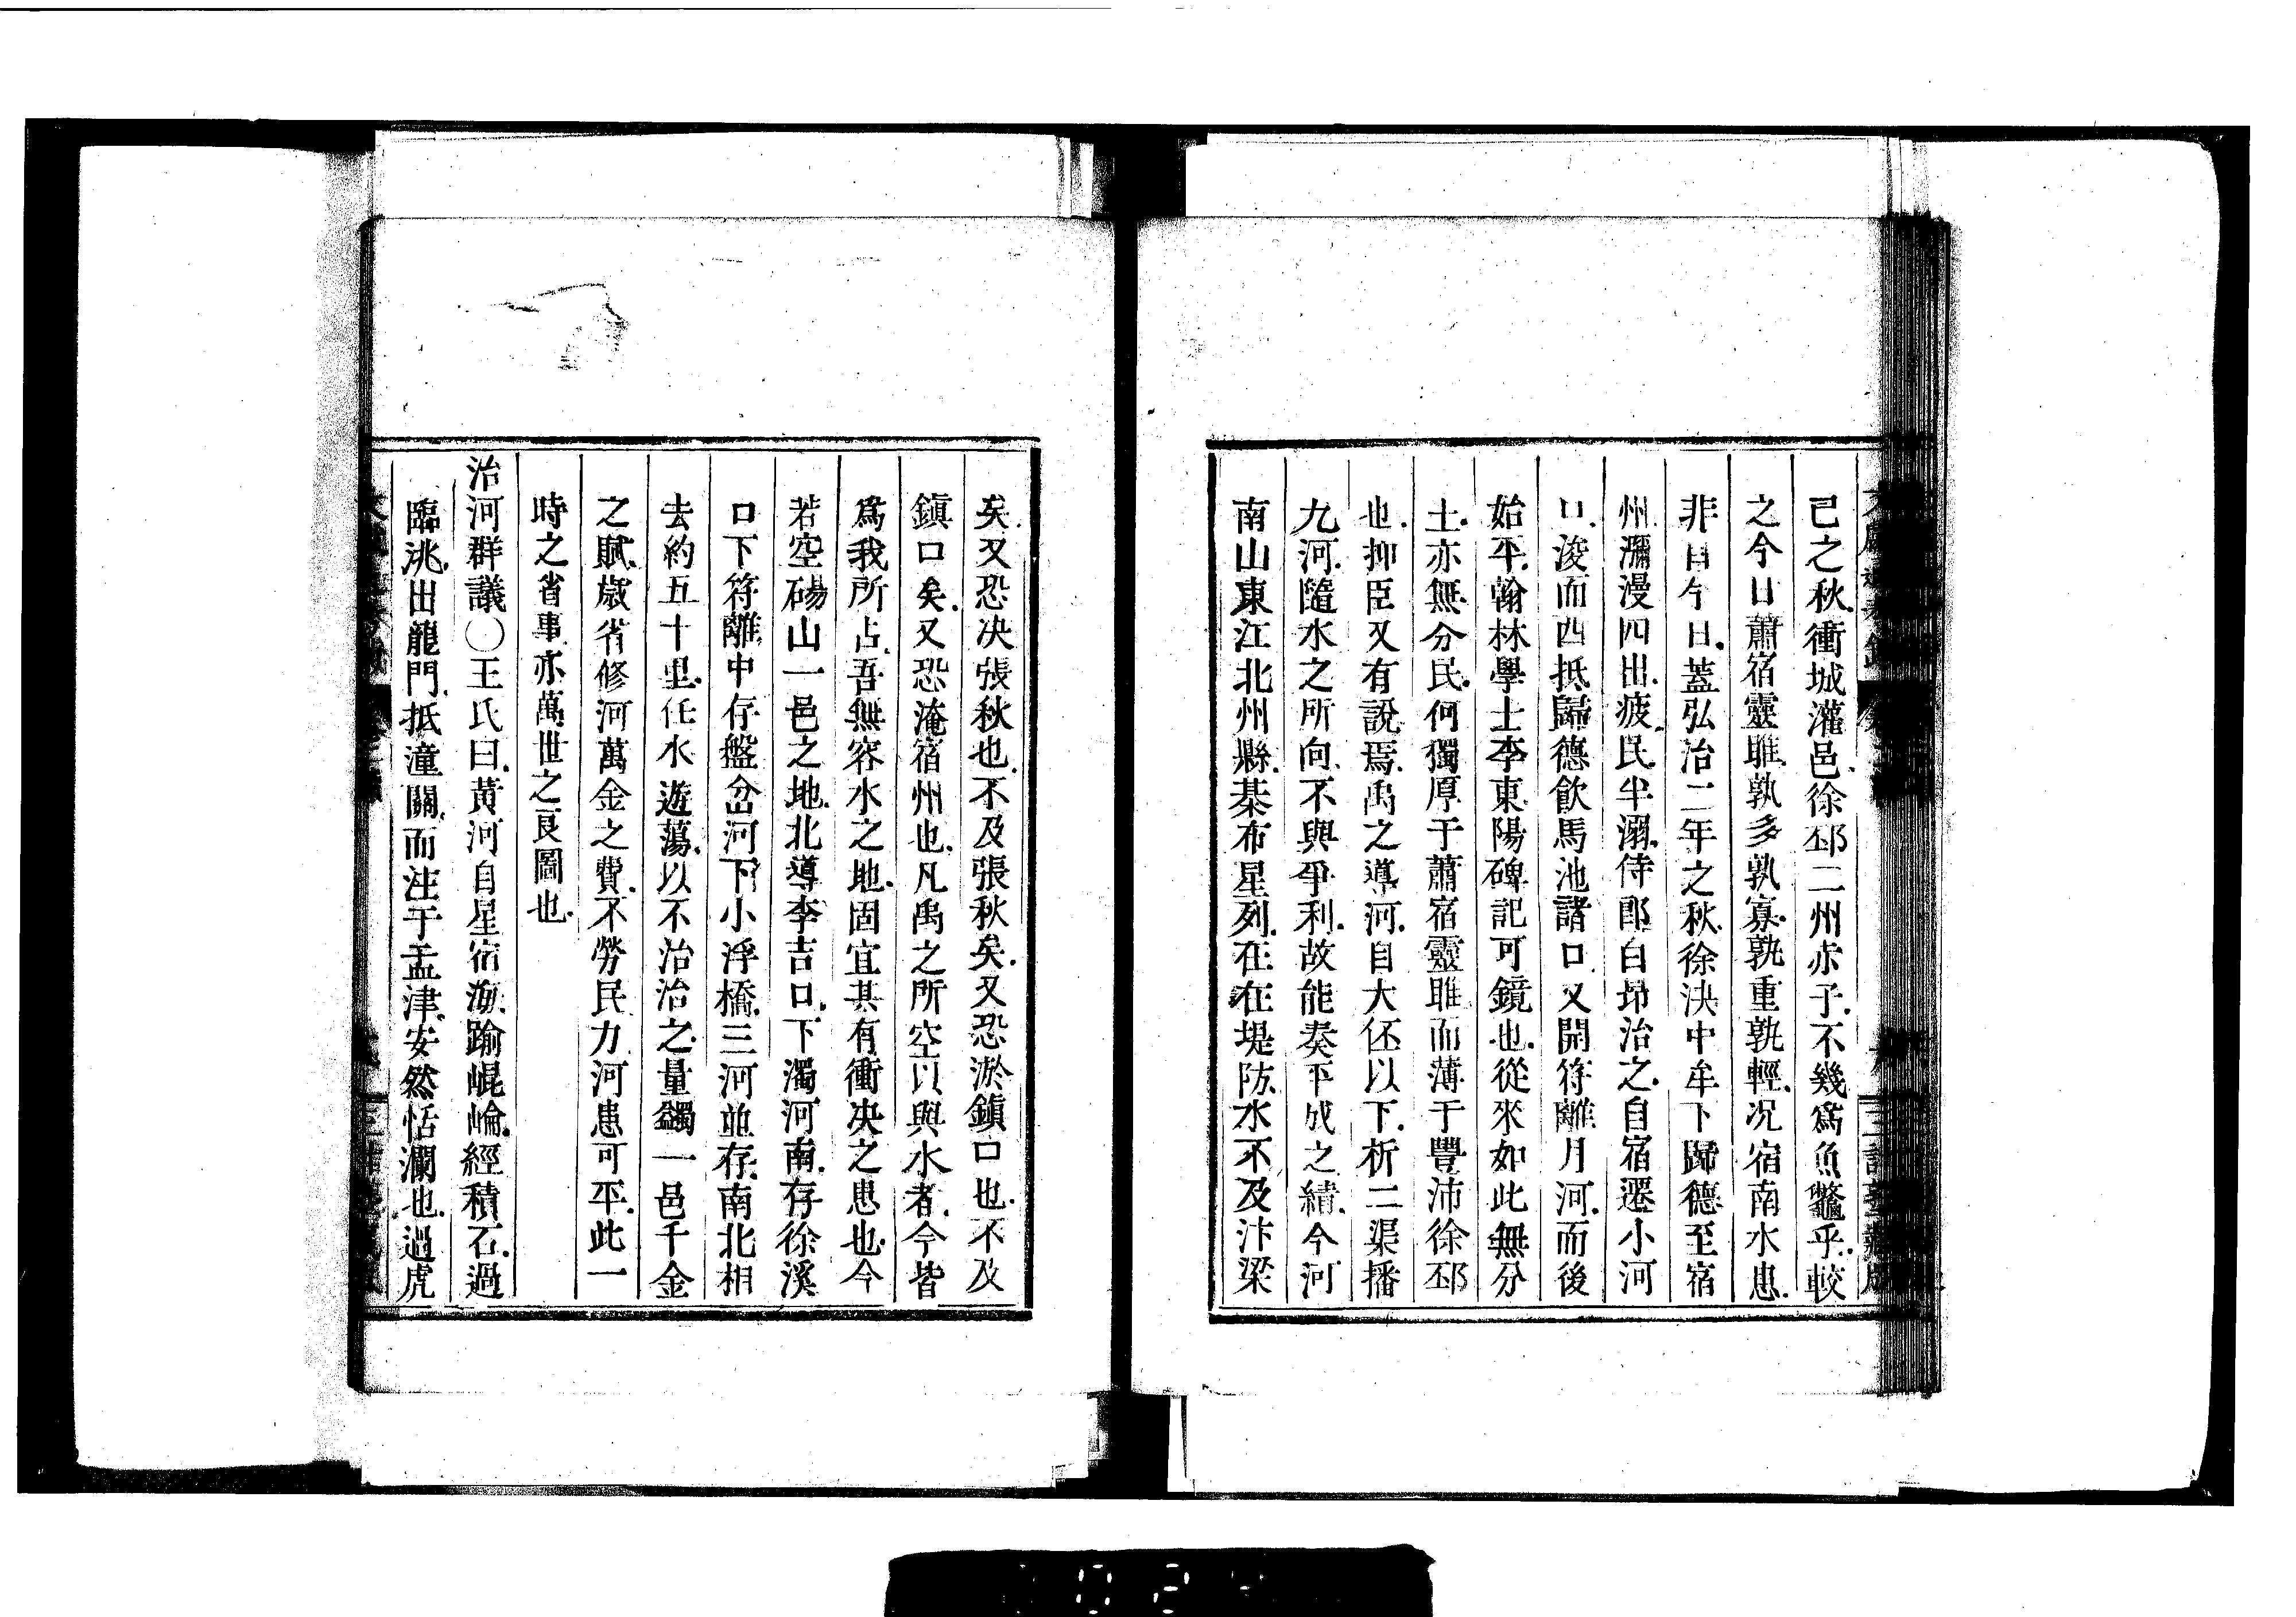 已之秋衝城灌邑徐邳二州赤子不幾爲魚鼈乎較
之今日蕭宿靈睢孰多孰寡孰重孰輕况宿南水患
非自今日蓋弘治二年之秋徐決中牟下歸德至宿
州瀰漫四出疲民半溺侍郎白昂治之自宿遷小河
口浚而西抵歸德飲馬池諸口又開符離月河而後
始平翰林學士李東陽碑記可鏡也從來如此無分
土亦無分民何獨厚于蕭宿靈睢而薄于豐沛徐邳
也抑臣又有說焉禹之導河自大伾以下析二渠播
九河隨水之所向不與爭利故能奏平成之績今河
南山東江北州縣棊布星列在在堤防水不及汴梁
矣又恐决張秋也不及張秋矣又恐淤鎮口也不及
鎮口矣又恐淹宿州也凡禹之所空以與水者今皆
爲我所占吾無容水之地固宜其有衝决之患也今
若空碭山一邑之地北導李吉口下濁河南存徐溪
口下符離中存盤岔河下小浮橋三河並存南北相
去約五十里任水遊蕩以不治治之量蠲一邑千金
之賦歲省修河萬金之費不勞民力河患可平此一
時之省事亦萬世之良圖也
治河群議〇王氏曰黃河自星宿海踰崐崘經積石過
臨洮出龍門抵潼關而注于孟津安然恬瀾也過虎